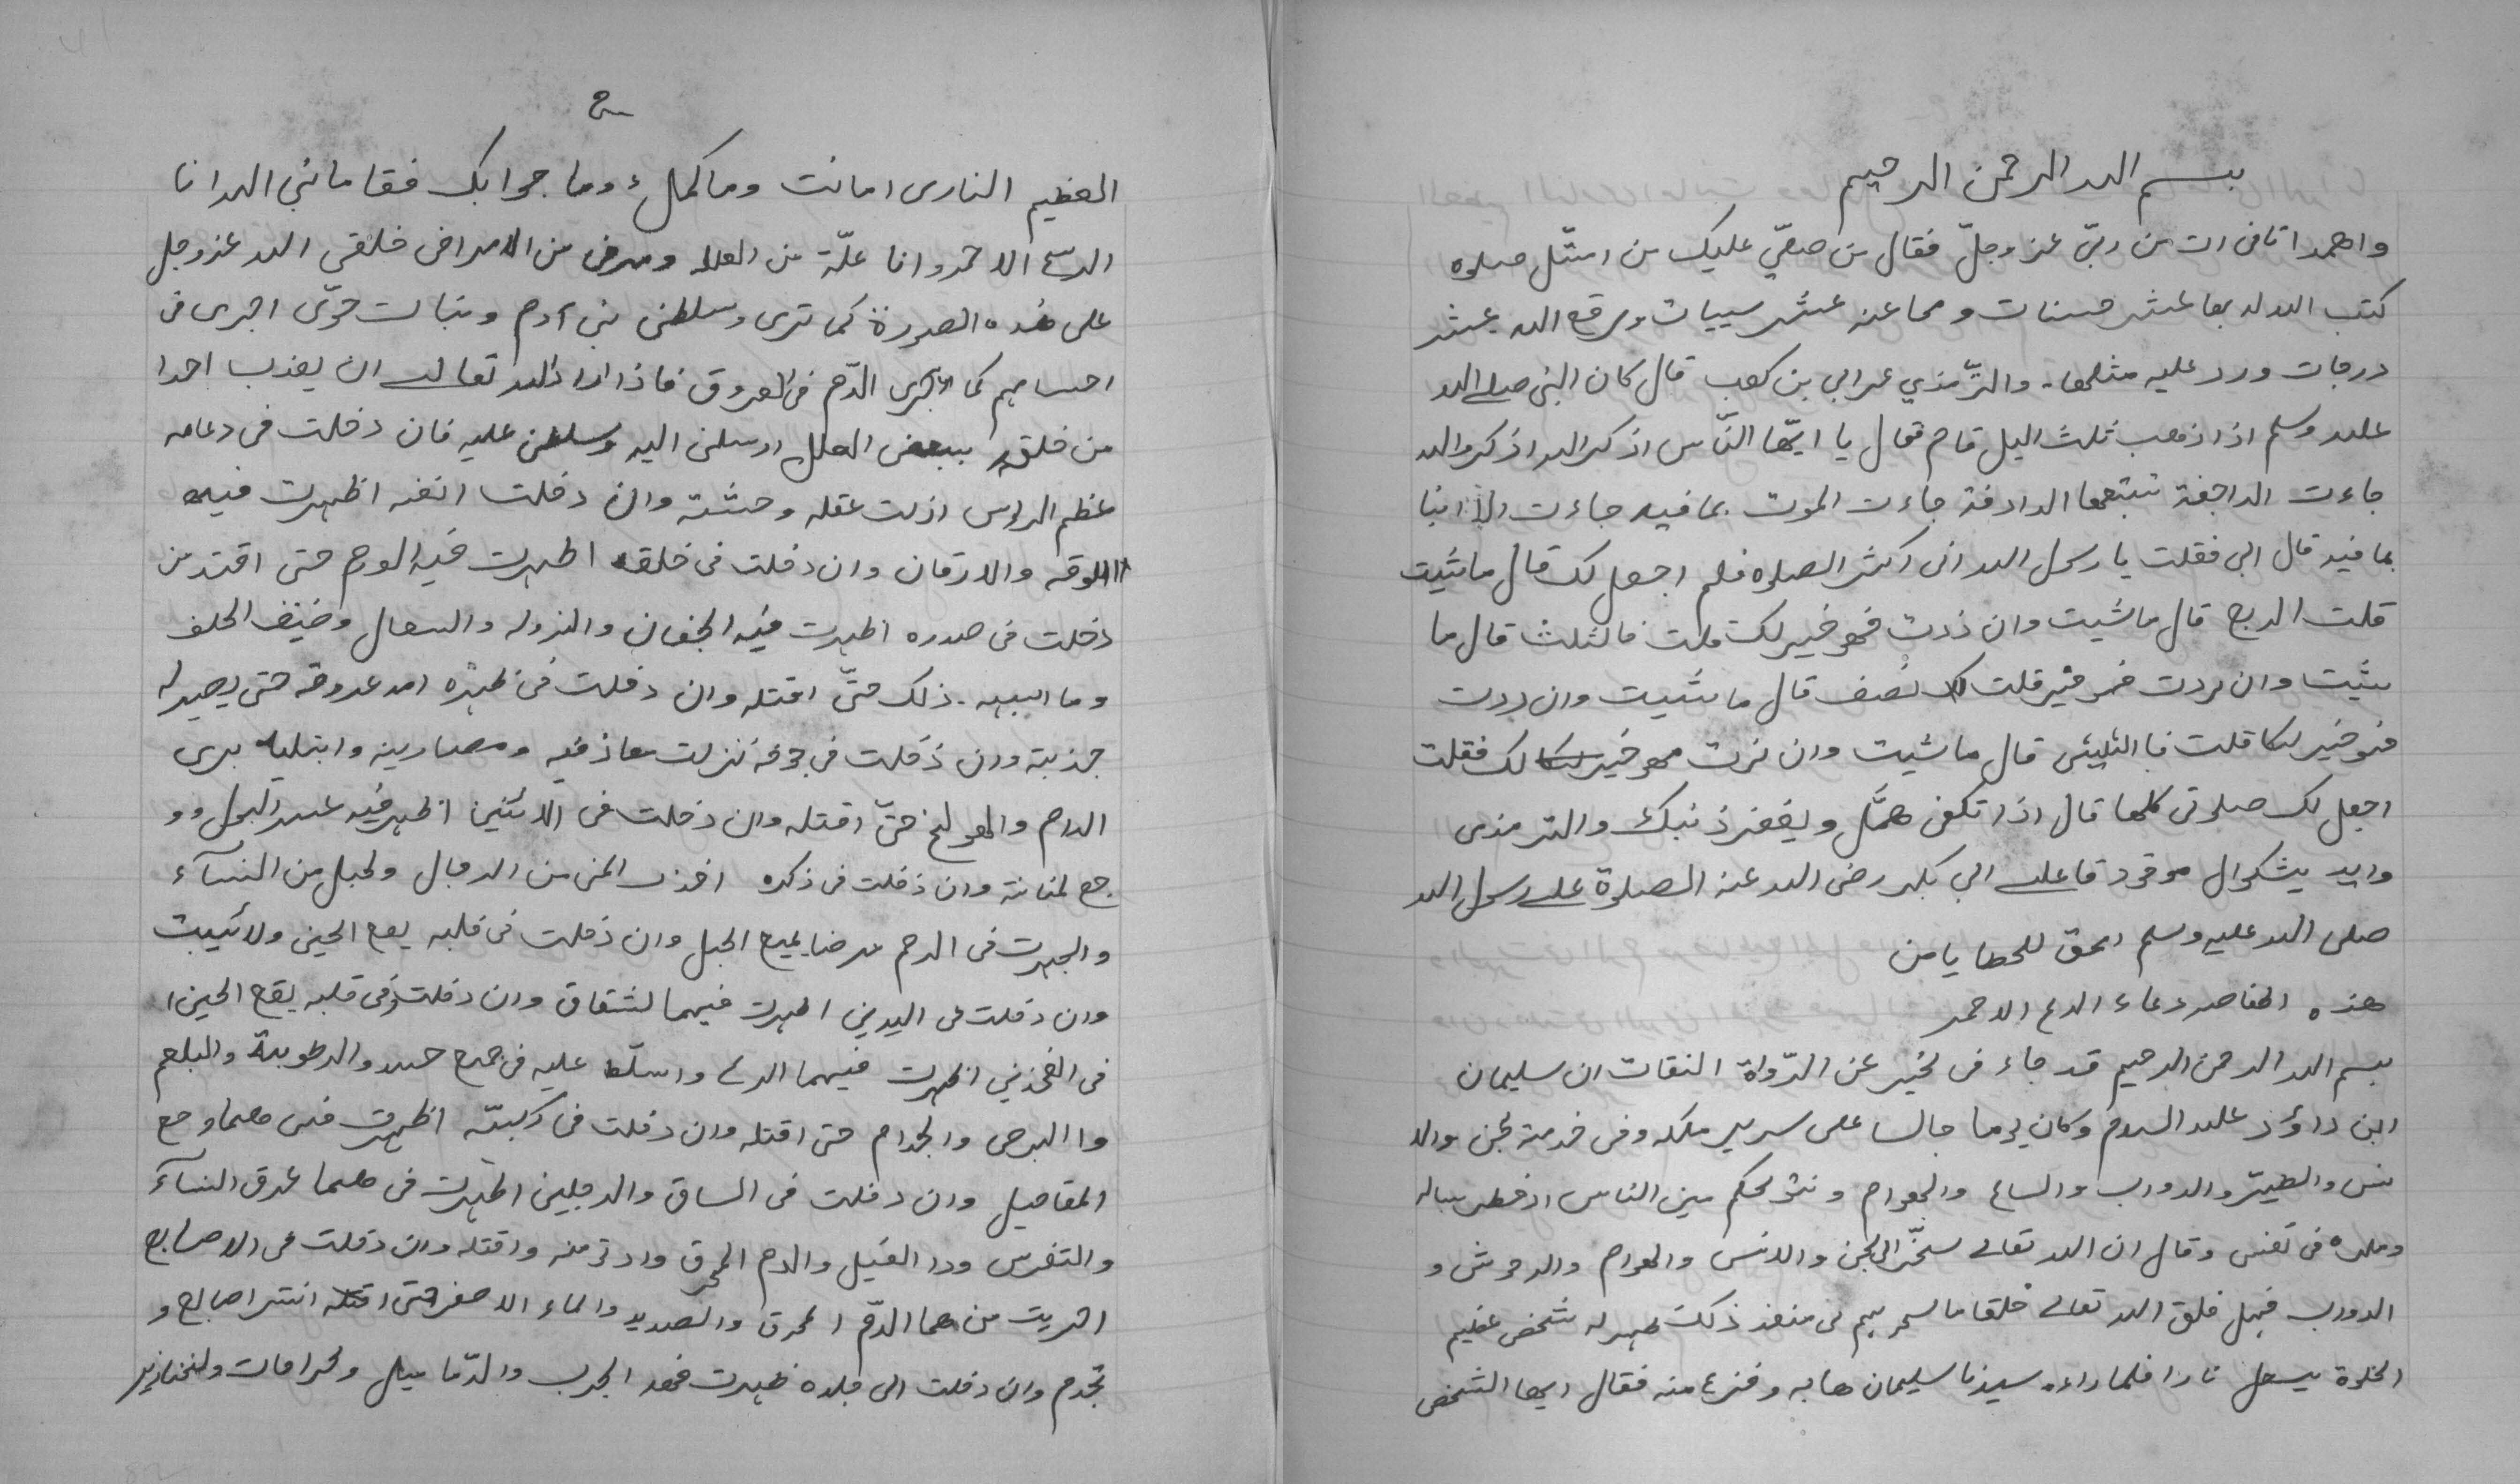 بسم الله الرحمن الرحيم
واحمد اتانى ات من ربّي عز وجلّ فقال من صلّي عليك من امتّك صلوه
كتب الله له بها عشر حسنات ومحا عنه عشر سييات ورفع الله عشر
درجات ورد عليه مثلها. والترّمذي عن ابي بن كعب قال كان النبى صلى الله
عليه وسلم اذا ذهب ثلث اليل قام فقال يا ايّها النّاس اذكر الله اذكروا الله
جاءت الراجفة تتبعها الرادفة جاءت الموت بما فيه جاءت
بما فيه قال ابي فقلت يا رسول الله انى اكثر الصلوه فلم اجعل لك قال ماشيت
قلت الربع قال ماشيت وان زدت فهو خير لك قلت فالثلث قال ما
شيت وان زدت فهو خير قلت نصف قال ماشيت وان زدت
فهو خير لك قلت فا الثليثى قال ماشيت وان زدت فهو خير لك فقلت
اجعل لك صلوتى كلها قال اذا تكفى همّك ويغفر ذنبك والترمذى
وابن بشكوال موقوفا على ابي بكر رضى الله عنه الصلوة على رسول الله
صلى الله عليه وسلم امحق للخطايا من
هذه دعاء الريح الاحمر
بسم الله الرحمن الرحيم قد جاء فى لخبر عن الرّواة الثقات ان سليمان
ابن داؤد عليه السلام وكان يوما جالسا على سرير ملكه وفى خدمة لجن والا
نس والطيّر والدواب والسباع والهوام و يحكم بين الناس اذ خطر بباله
وملكه فى نفس وقال ان الله تعالى سخّر الى لجن والانس والهوام والوحوش و
الدواب فهل خلق الله تعالى خلقا فى ذلك ظهر له شخص عظيم
الخلوة نارا فلما راءه سيدنا سليمان هابه وفزع منه فقال ايها الشخص
٢
العظيم النارى امانت وما كملء وما جوابك فقا مانبي الله انا
الريح الاحمر وانا علّة من العلل ومرض من الامراض خلقى الله عز وجل
على هذه الصورة كما ترى وسلطنى بنى آدم وبنات حوّى اجرى فى
اجسامهم كما تجرى الدّم فى العروق فاذا اراد الله تعالى ان يعذب احدا
من خلقه ببعض العلل ارسلنى اليه وسلطنى عليه فان دخلت فى دماغه
عظم الراس ازلت عقله وان دخلت انفه اظهرت فيه
اللوقه والارقان وان دخلت فى حلقه اظهرت فيه الورم حتى اقتد من
دخلت فى صدره اظهرت فيه الخفان والنزوله والسعال وضيف الحلف
وما اشبهه ذلك حتّى اقتله وان دخلت فى ظهره امد عروقه حتى يصير له
جذبة وان دخلت فى جوفه نزلت ومصارينه وابتليه برى
الدم والهولنج حتى اقتله وان دخلت فى الانثين اظهر فيه عسر البول وو
جع لمثانة وان دخلت فى ذكره اخذت المنى من الرجال ولحبل من النسآء
واظهرت فى الرحم مرضا يمنع الحبل وان دخلت فى قلبه
وان دخلت فى اليدين اظهرت فيهما لشقاق وان دخلت فى قلبه يقع
فى الفخذين اظهرت فيهما واسلّط عليه فى جميع جسد والرطوبة والبلغم
وا البرص والجذام حتى اقتله وان دخلت فى ركبته اظهرت
المفاصل وان دخلت فى الساق والرجلين اظهرت فى عرق النسآء
والنقرس ودا الفيل والدم المحرق واقتله وان دخلت فى الاصابع
من هما الدّم المحرق والصديد والماء الاصفر حتى اصابع و
تجدم وان دخلت الى جلده ظهرت الجرب والدّماميل ولخنازير